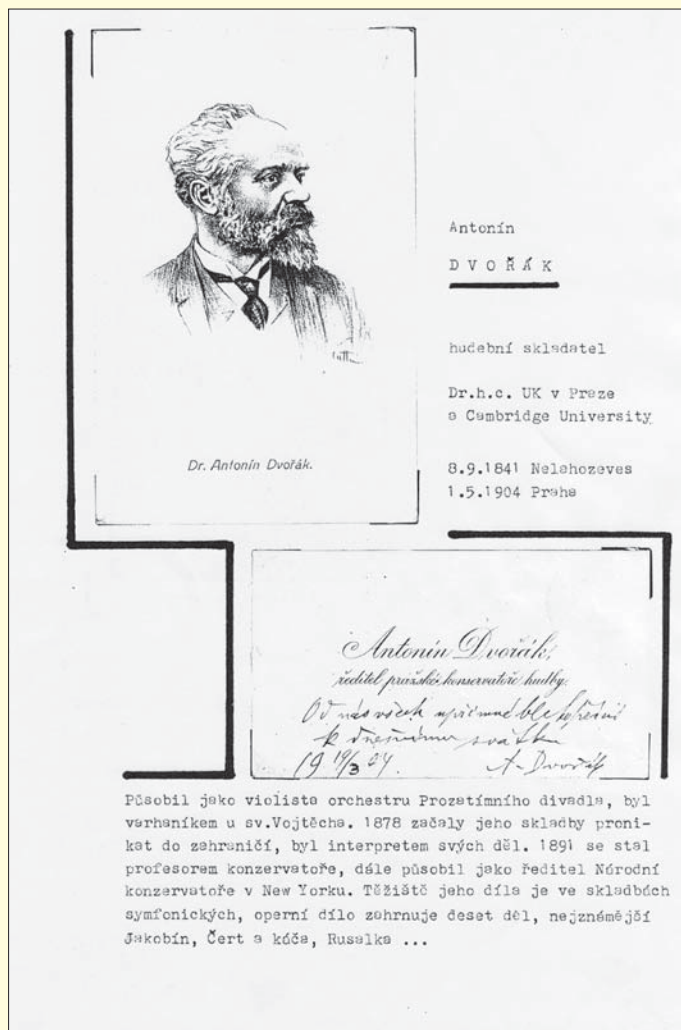 Dr. Antonín Dvořák.
Antonín
DVOŘÁK
hudební skladatel
Dr.h.c. UK v Praze
a Cambridge University
8.9.1841 Nelahozeves
1.5.1904 Praha
Antonín Dvořák,
ředitel pražské konservatoře hudby.
Od nás všech upřímné blahopřání
k dnešnímu svátku
19 19/3 04. A. Dvořák
Působil jako violista orchestru Prozatímního divadla, byl
varhaníkem u sv.Vojtěcha. 1878 začaly jeho skladby proni-
kat do zahraničí, byl interpretem svých děl. 1891 se stal
profesorem konzervatoře, dále působil jako ředitel Národní
konzervatoře v New Yorku. Těžiště jeho díla je ve skladbách
symfonických, operní dílo zahrnuje deset děl, nejznámější
Jakobín, Čert a káča, Rusalka ...